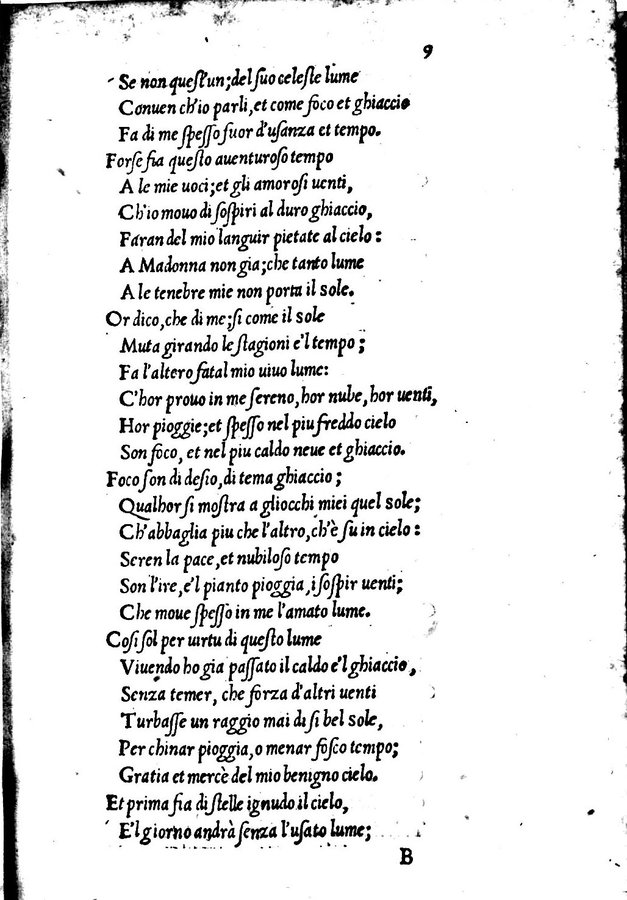 9
Se non quest'un; del suo celeste lume
Conven ch'io parli, et come foco et ghiaccio
Fa di me spesso fuor d'usanza et tempo.
Forse fia questo auenturoso tempo
A le mie uoci; et gli amorosi uenti,
Ch'io mouo di sospiri al duro ghiaccio,
Faran del mio languir pietate al cielo:
A Madonna non gia; che tanto lume
A le tenebre mie non porta il sole.
Or dico, che di me; si come il sole
Muta girando le stagioni e'l tempo;
Fa l'altero fatal mio uiuo lume:
C'hor prouo in me sereno, hor nube, hor uenti,
Hor pioggie; et spesso nel piu freddo cielo
Son foco, et nel piu caldo neue et ghiaccio.
Foco son di desio, di tema ghiaccio;
Qualhor si mostra a gliocchi miei quel sole;
Ch'abbaglia piu che l'altro, ch'è su in cielo:
Seren la pace, et nubiloso tempo
Son l'ire, e'l pianto pioggia, i sospir uenti;
Che moue spesso in me l'amato lume.
Cosi sol per uirtu di questo lume
Viuendo ho gia passato il caldo e'l ghiaccio,
Senza temer, che forza d'altri uenti
Turbasse un raggio mai di si bel sole,
Per chinar pioggia, o menar fosco tempo;
Gratia et mercè del mio benigno cielo.
Et prima fia di stelle ignudo il cielo,
E'l giorno andrà senza l'usato lume;
B